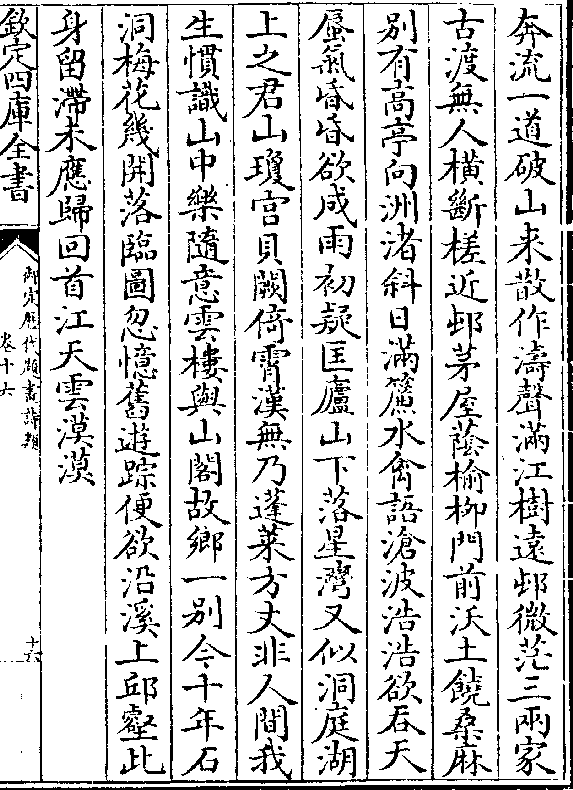 奔流一道破山来散作濤聲滿江樹遠邨微茫三兩家
古渡無人橫斷槎近邨茅屋蔭榆柳門前沃土饒桑麻
别有高亭向洲渚斜日滿簾水禽語滄波浩浩欲吞天
蜃氣昏昏欲成雨初疑匡廬山下落星灣又似洞庭湖
上之君山瓊宫貝闕倚霄漢無乃蓬萊方丈非人間我
生慣識山中樂隨意雲樓與山閣故鄉一别今十年石
洞梅花幾開落臨圖忽憶舊遊踪便欲沿溪上邱壑此
身留滯未應歸回首江天雲漠漠
欽定四庫全書
御定歷代題畫詩類
卷十六
十六